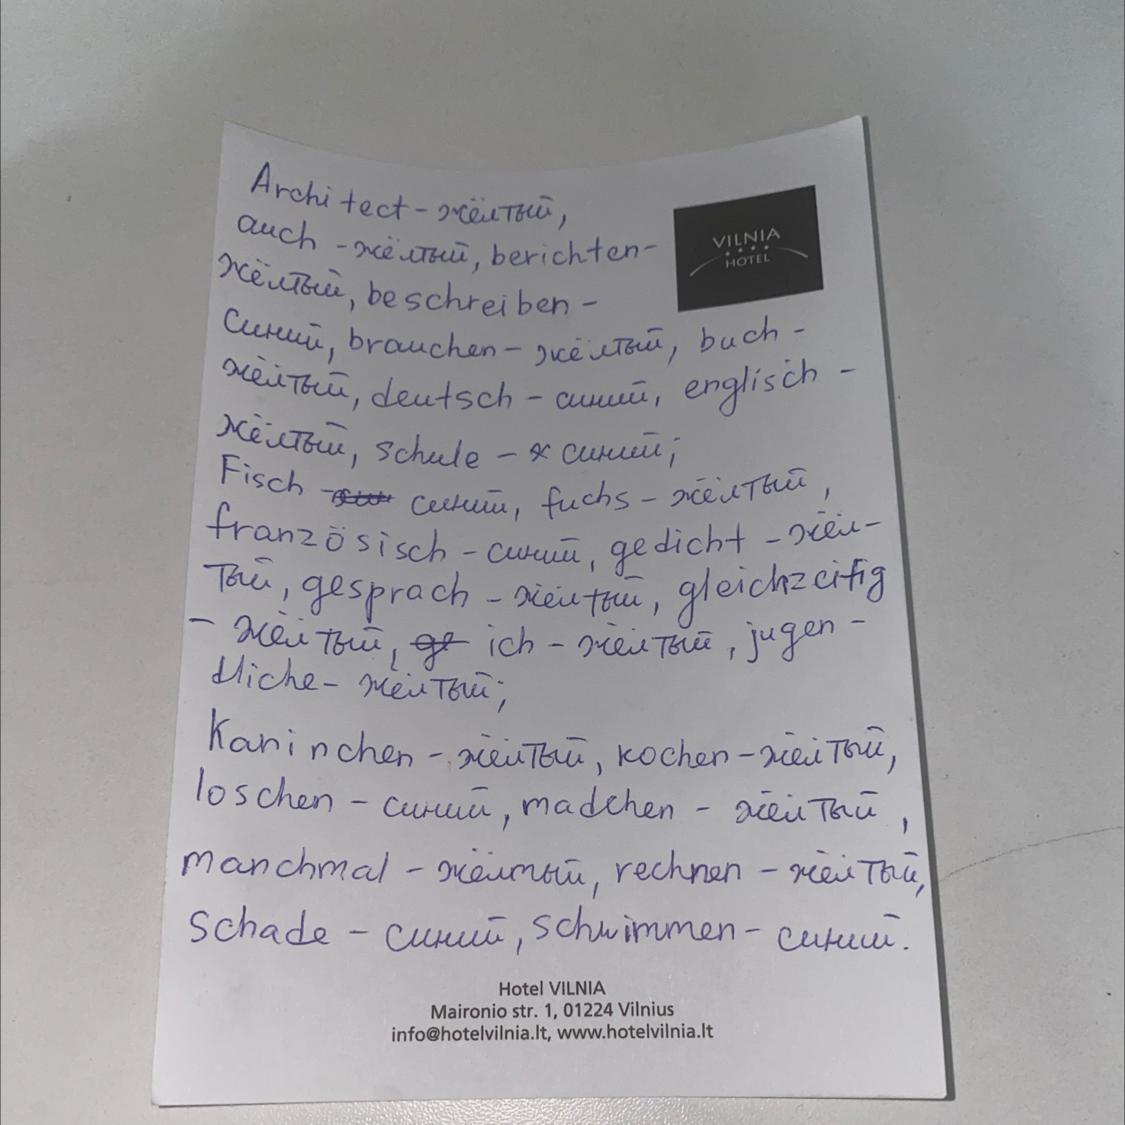 Architect - жёлтый,
VILNIA
HOTEL
auch - жёлтый, berichten -
жёлтый, beschreiben -
Синий, brauchen - жёлтый, buch -
жёлтый, deutsch - синий, englisch -
жёлтый, schule - синий;
Fisch синий, fuchs - жёлтый,
französisch - синий, gedicht - жёл-
тый, gesprach - жёлтый, gleichzeitig
- жёлтый, ich - жёлтый, jugen -
dliche - жёлтый;
Kaninchen - жёлтый, kochen - жёлтый,
loschen - синий, madchen - жёлтый,
manchmal - жёлтый, rechnen - жёлтый,
Schade - синий, schwimmen - синий.
Hotel VILNIA
Maironio str. 1, 01224 Vilnius
info@hotelvilnia.lt, www.hotelvilnia.lt